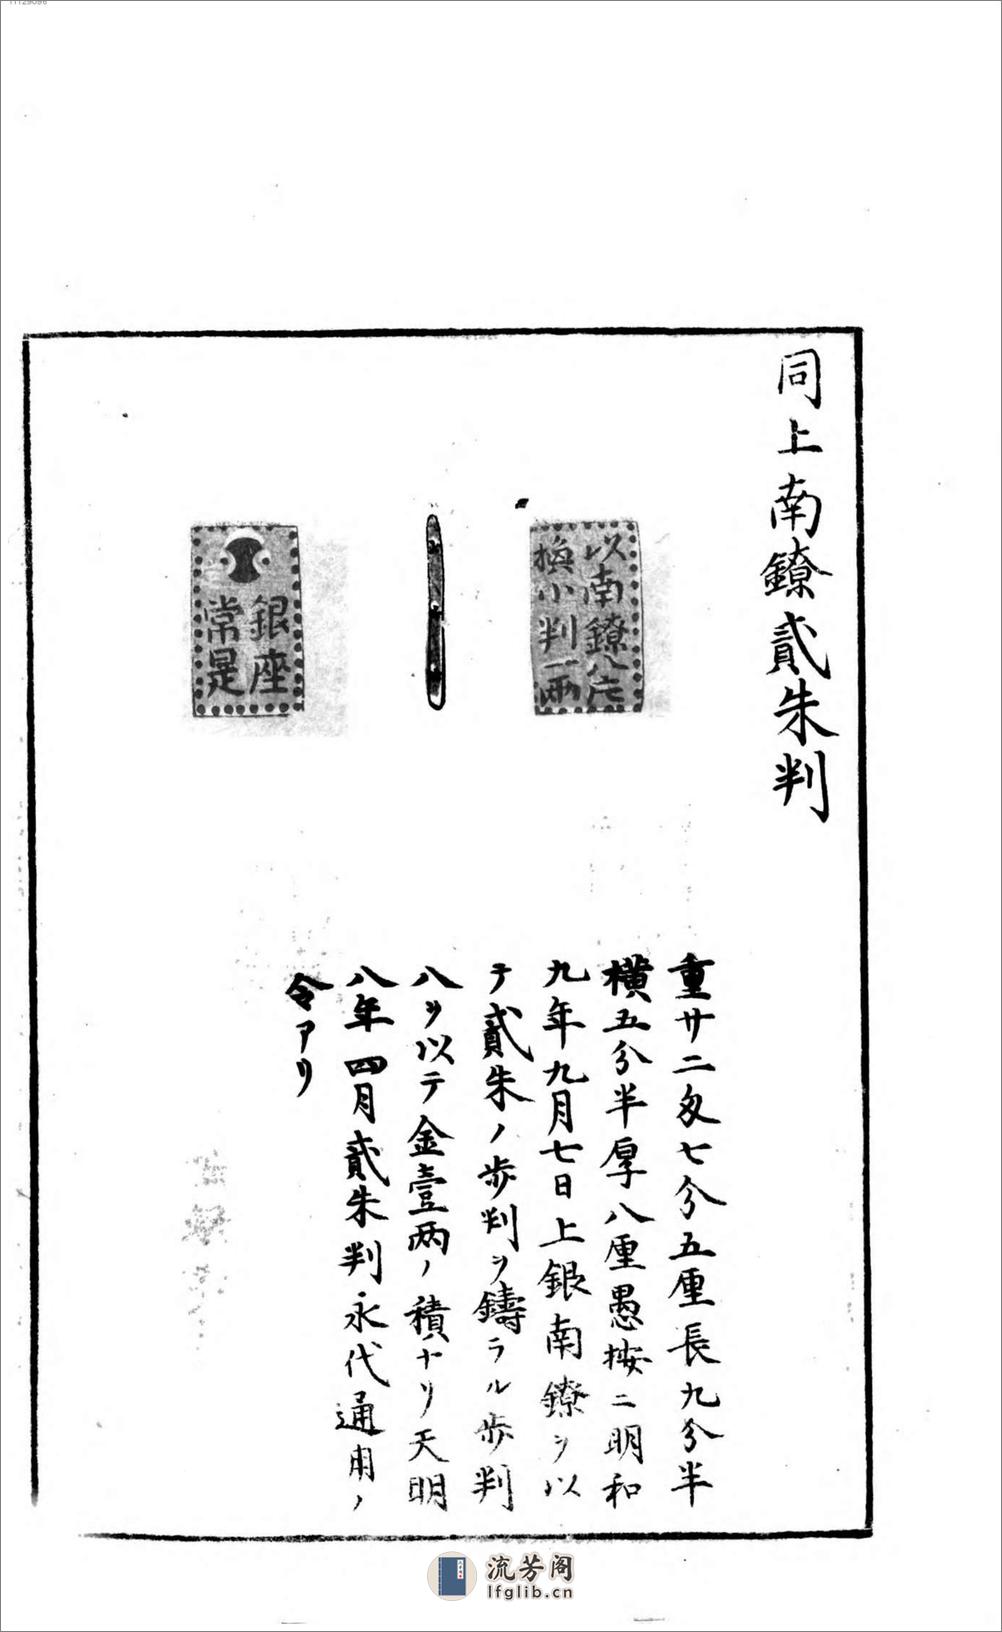 同上南鐐貳朱判
以南鐐八片
換小判一兩
銀座
常是
重廿二匁七分五厘長九分半
橫五分半厚八厘愚按ニ明和
九年九月七日上銀南鐐ヲ以
テ貳朱ノ歩判ヲ鑄ラル歩判
八ヲ以テ金壹兩ノ積ナリ天明
八年四月貳朱判永代通用ノ
令アリ
流芳阁
lfglib.cn